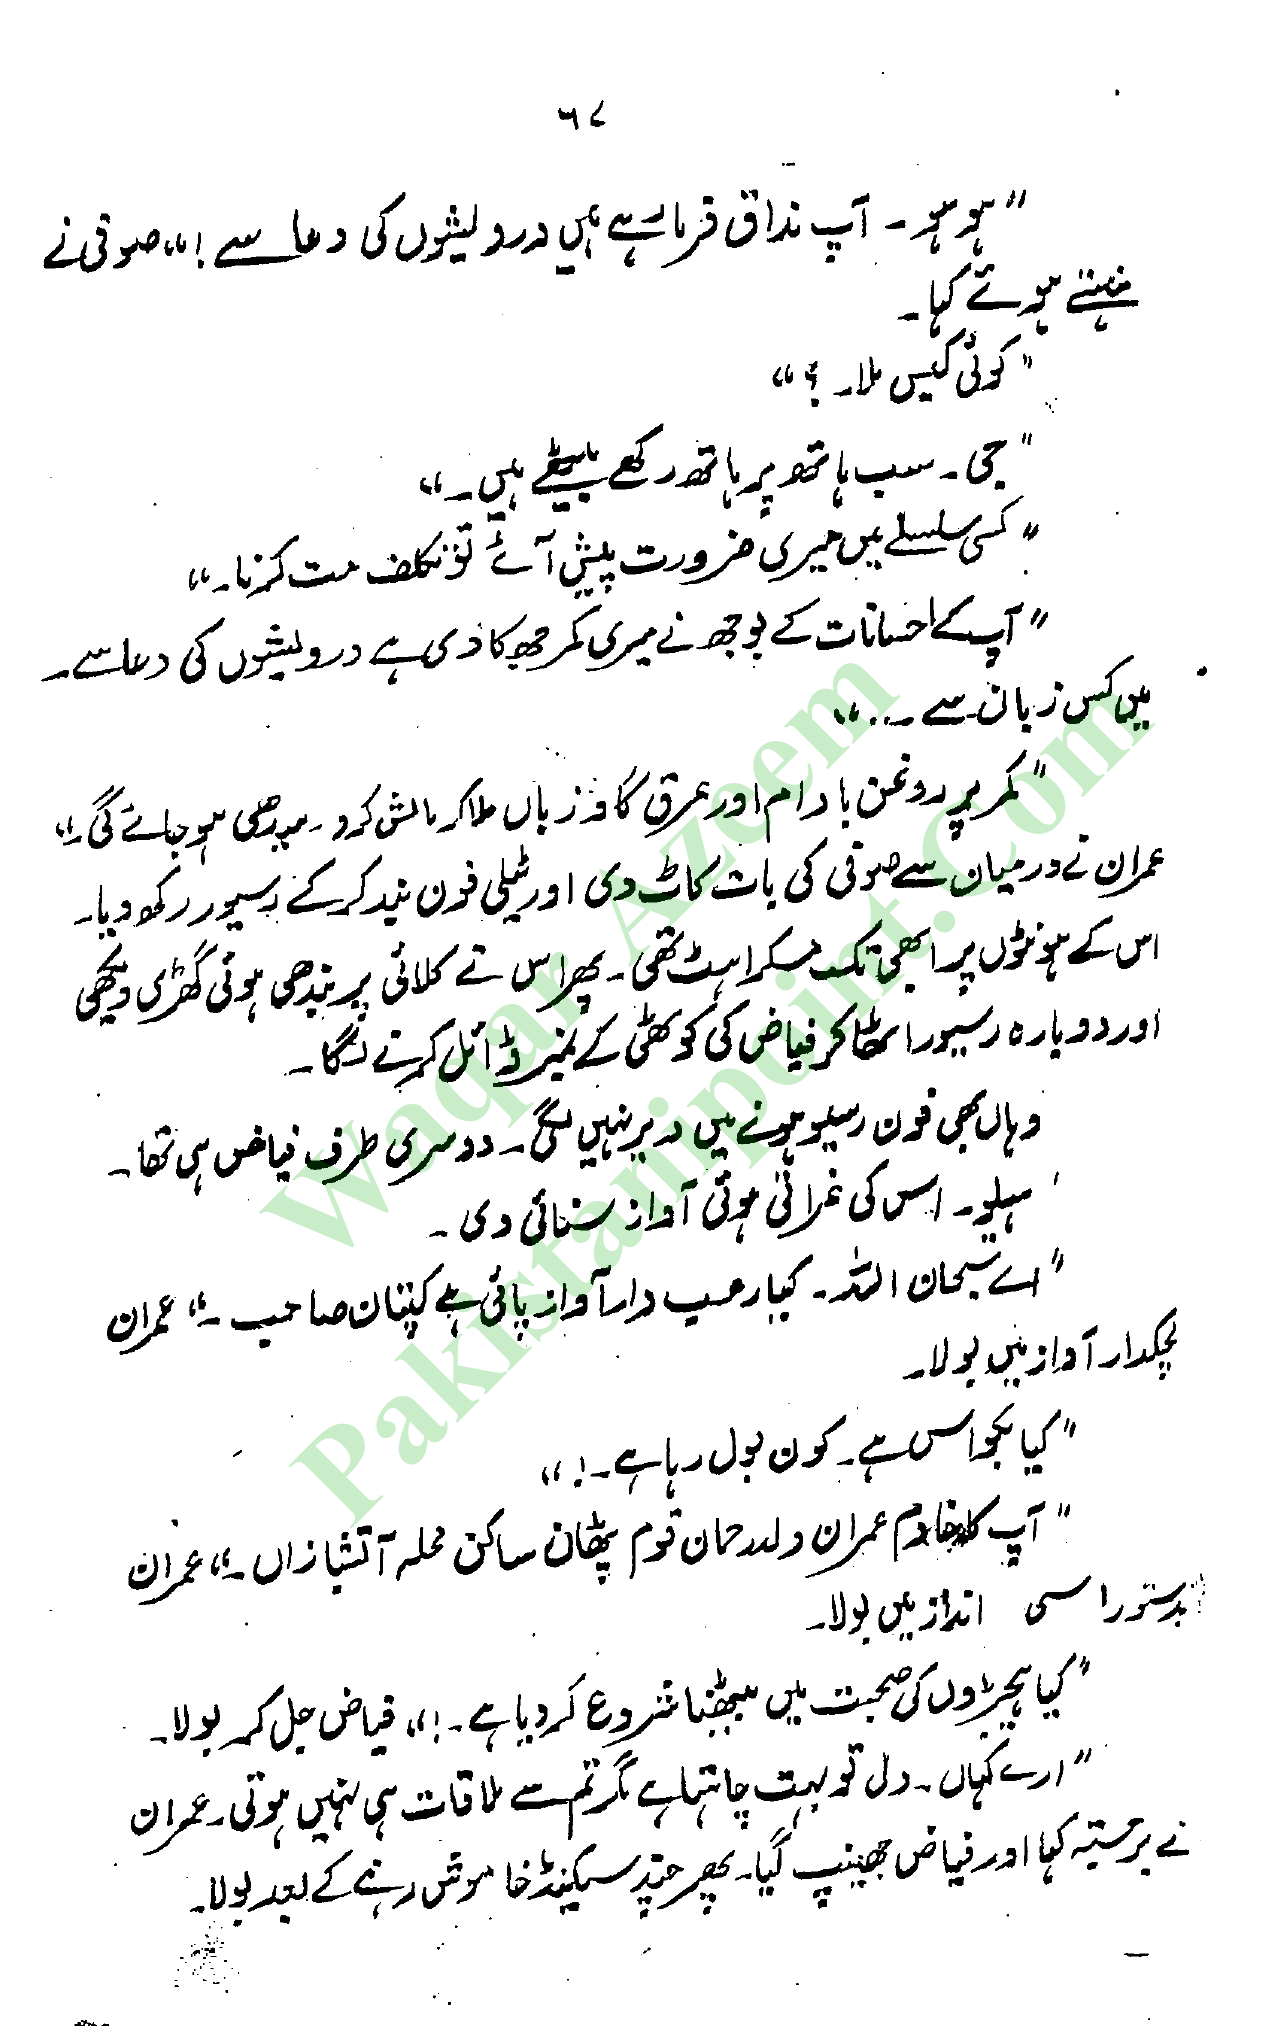 ۶۷
"ہو ہو۔ آپ مذاق فرما رہے ہیں درویشوں کی دعا سے!" صوفی نے
ہنستے ہوئے کہا۔
"کوئی کیس ملا۔ ؟"
"جی۔ سب ہاتھ پر ہاتھ رکھے بیٹھے ہیں۔"
"کسی سلسلے میں میری ضرورت پیش آئے تو تکلف مت کرنا۔"
"آپ کے احسانات کے بوجھ نے میری کمر جھکا دی ہے درویشوں کی دعا سے۔
میں کس زبان سے ۔۔۔"
"کمر پر روغن بادام اور عرق گاؤ زباں ملا کر مالش کرو۔ سیدھی ہو جائے گی۔"
عمران نے درمیان سے صوفی کی بات کاٹ دی اور ٹیلی فون بند کر کے رسیور رکھ دیا۔
اس کے ہونٹوں پر ابھی تک مسکراہٹ تھی۔ پھر اس نے کلائی پر بندھی ہوئی گھڑی دیکھی
اور دوبارہ رسیور اٹھا کر فیاض کی کوٹھی کے نمبر ڈائل کرنے لگا۔
وہاں بھی فون رسیو ہونے میں دیر نہیں لگی۔ دوسری طرف فیاض ہی تھا۔
'ہیلو۔ اس کی غراتی ہوئی آواز سنائی دی۔
"اے سبحان اللہ۔ کیا رعب دار آواز پائی ہے کپتان صاحب۔" عمران
لچکدار آواز میں بولا۔
"کیا بکواس ہے۔ کون بول رہا ہے۔!"
"آپ کا خادم عمران ولد رحمان قوم پٹھان ساکن محلہ آتشبازاں۔" عمران
بدستور اسی انداز میں بولا۔
"کیا ہیجڑوں کی صحبت میں بیٹھنا شروع کر دیا ہے۔!" فیاض جل کر بولا۔
"ارے کہاں۔ دل تو بہت چاہتا ہے مگر تم سے ملاقات ہی نہیں ہوتی۔ عمران
نے برجستہ کہا اور فیاض جھینپ گیا۔ پھر چند سیکنڈ خاموش رہنے کے بعد بولا۔
Waqar Azeem
Pakistanipoint.Com